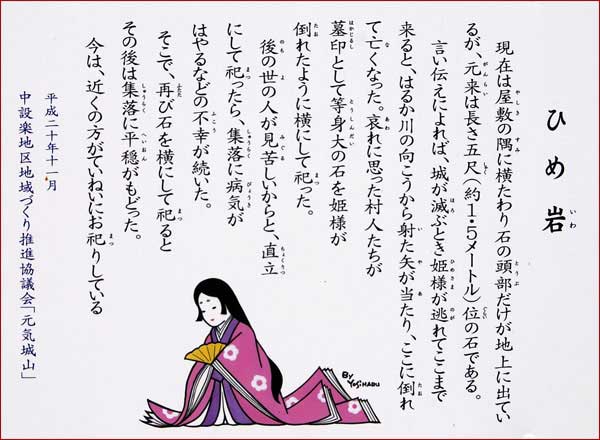 ひめ岩
現在は屋敷の隅に横たわり石の頭部だけが地上に出てい
るが、元来は長さ五尺(約1・5メートル)位の石である。
言い伝えによれば、城が滅ぶとき姫様が逃れてここまで
来ると、はるか川の向こうから射た矢が当たり、ここに倒れ
て亡くなった。哀れに思った村人たちが
墓印として等身大の石を姫様が
倒れたように横にして祀った。
後の世の人が見苦しいからと、直立
にして祀ったら、集落に病気が
はやるなどの不幸が続いた。
そこで、再び石を横にして祀ると
その後は集落に平穏がもどった。
今は、近くの方がていねいにお祀りしている
平成二十年十一月
中設楽地区地域づくり推進協議会「元気城山」
BY